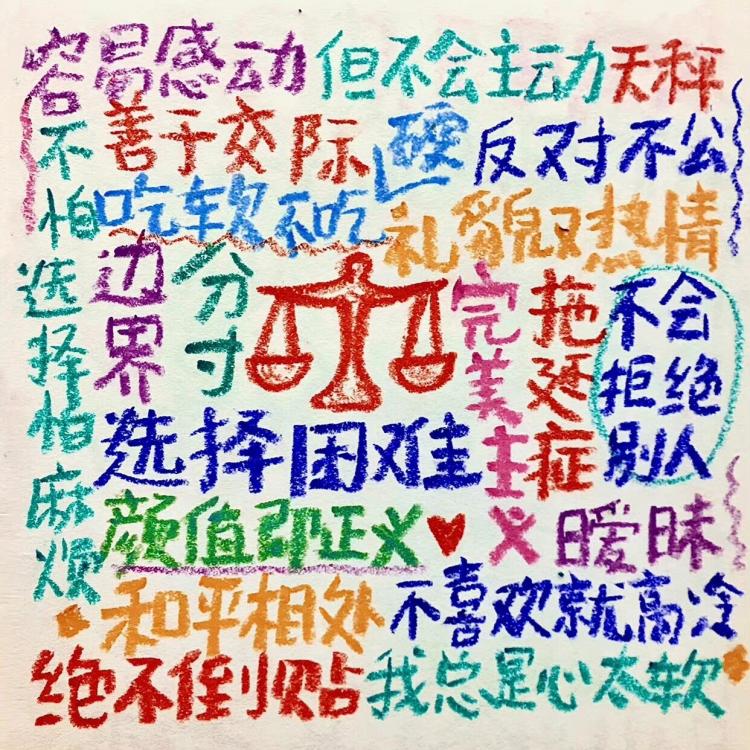 容易感动
但不会主动
天秤
善于交际
反对不公
吃软不吃硬
礼貌又热情
不怕选择怕麻烦
边界
分寸
完美主义
拖延症
不会
拒绝
别人
选择困难
颜值即正义
暧昧
和平相处
不喜欢就高冷
绝不倒贴
我总是心太软